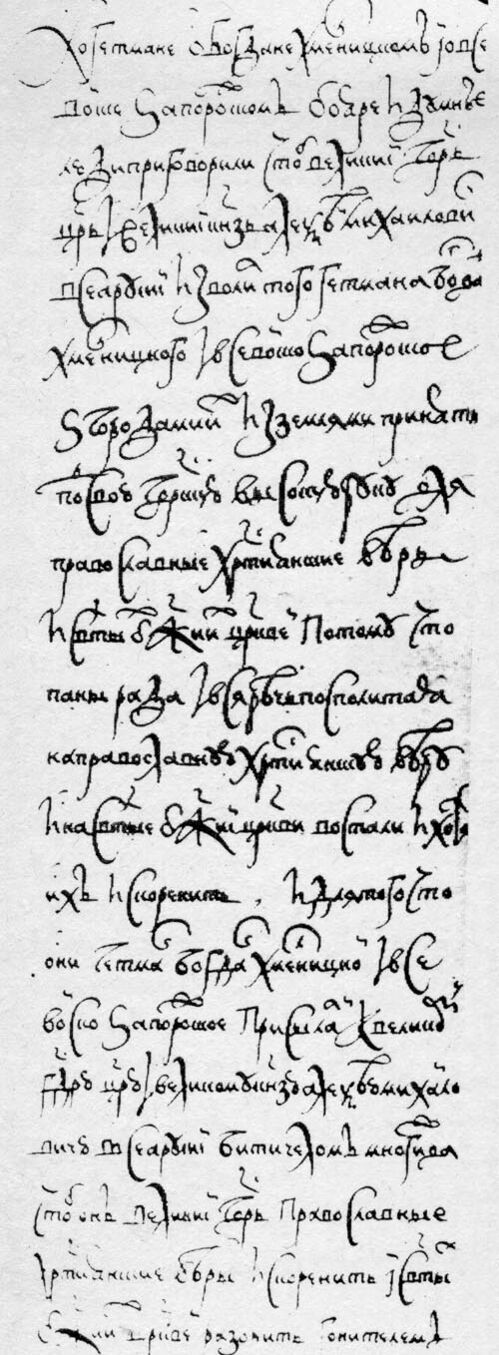 А о гетмане о Богдане Хмелницкомъ и о все
войске Запорожскомъ бояре и думные
люди приговорили чтоб великий гсдрь
црь и великий кнзь Алексей Михайлович
всеа Русии изволил того гетмана Богдана
Хмелницкого и все войско Запорожское
з городами их и з землями принять
под свою гсдрскую высокую руку для
православные хртиянские веры
и свтых бжиих црквей потому что
паны рада и вся Речь Посполитая
на православную хртиянскую веру
и на свтые бжии цркви востали и хотят
ихъ искоренить, и для того что
они гетман Богдан Хмелницкой и все
войско Запорожское присылали к великому
гсдрю црю и великому кнзю Алексею Михайло
вичю всеа Русии бити челомъ многижда
чтоб онъ великий гсдрь православные
хртиянские веры искоренить и свтых
бжиих црквей разорить гонителем и